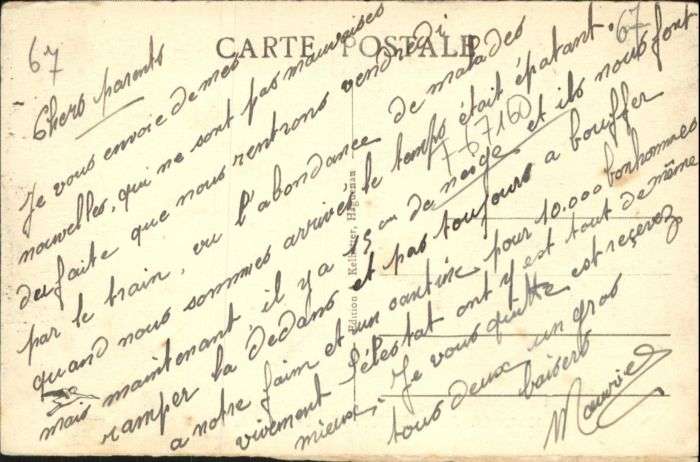 67
67
CARTE POSTALE
Chers parents
Je vous envoie de mes
nouvelles, qui ne sont pas mauvaises
du faite que nous rentrons vendredi
par le train, vu l'abondance de malades
quand nous sommes arrivés le temps était épatant.
mais maintenant il y a 5 cm de neige et ils nous font
ramper la dedans et pas toujours a bouffer
a notre faim et un cantine pour 10.000 bonhommes
vivement Sélestat ont y est tout de même
mieux. Je vous quitte est reçevez
tous deux un gros
baisers
Maurice
767160
Edition Kelhetter, Haguenau